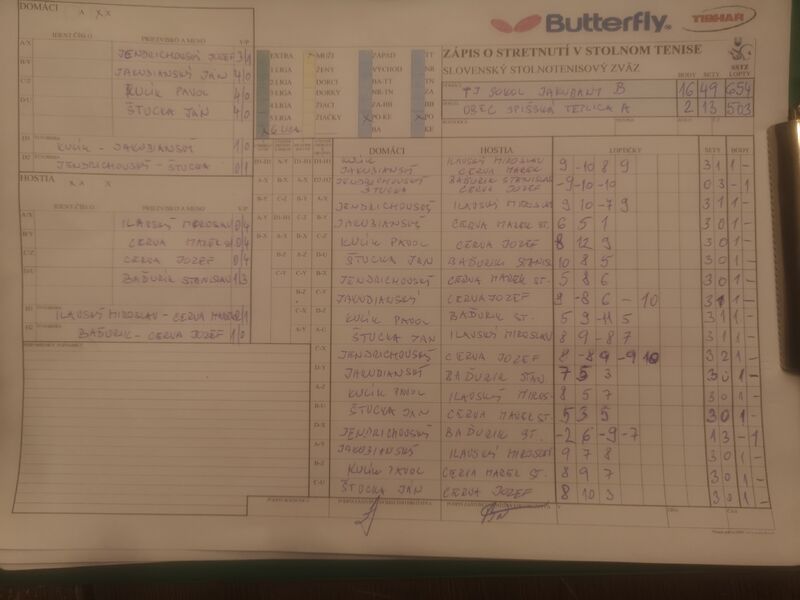 DOMÁCI
A XX
Butterfly
TIBHAR
ZÁPIS O STRETNUTÍ V STOLNOM TENISE
SLOVENSKÝ STOLNOTENISOVÝ ZVÄZ
SSTZ
IDENT.ČÍSLO PRIEZVISKO A MENO V/P
A/X JENDRICHOVSKÝ JOZEF 3/1
B/Y JAKUBIANSKÝ JÁN 4/0
C/Z KULÍK PAVOL 4/0
D/U ŠTUCKA JÁN 4/0
D1 KULÍK - JAKUBIANSKÝ 1/0
D2 JENDRICHOVSKÝ - ŠTUCKA 0/1
EXTRA MUŽI ZÁPAD TT
ŽENY VÝCHOD NR
DORCI BA-TT TN
DORKY NR-TN ZA
ŽIACI ZA-BB BB
ŽIAČKY X PO-KE X PO
BA KE
BODY SETY LOPTY
TJ SOKOL JAKUBANY B 16 49 654
OBEC SPIŠSKÁ TEPLICA A 2 13 503
HOSTIA
XX X
IDENT.ČÍSLO PRIEZVISKO A MENO V/P
A/X ILAVSKÝ MIROSLAV 0/4
B/Y CERVA MAREK ST 0/4
C/Z CERVA JOZEF 0/4
D/U BAĎURIK STANISLAV 1/3
D1 ILAVSKÝ MIROSLAV - CERVA MAREK 0/1
D2 BAĎURIK - CERVA JOZEF 1/0
DOMÁCI HOSTIA LOPTIČKY SETY BODY
KULÍK JAKUBIANSKÝ ILAVSKÝ MIROSLAV CERVA MAREK 9 -10 8 9 3 1 1 -
JENDRICHOVSKÝ ŠTUCKA BAĎURIK STANISLAV CERVA JOZEF -9 -10 -10 0 3 - 1
JENDRICHOVSKÝ ILAVSKÝ MIROSLAV 9 10 -7 9 3 1 1 -
JAKUBIANSKÝ CERVA MAREK ST. 6 5 1 3 0 1 -
KULÍK PAVOL CERVA JOZEF 8 12 9 3 0 1 -
ŠTUCKA JÁN BAĎURIK STANIS 10 8 5 3 0 1 -
JENDRICHOVSKÝ CERVA MAREK ST. 5 8 6 3 0 1 -
JAKUBIANSKÝ CERVA JOZEF 9 -8 6 - 10 3 1 1 -
KULÍK PAVOL BAĎURIK ST. 5 9 -11 5 3 1 1 -
ŠTUCKA JÁN ILAVSKÝ MIROSLAV 8 9 -8 7 3 1 1 -
JENDRICHOVSKÝ CERVA JOZEF 8 -8 9 -9 10 3 2 1 -
JAKUBIANSKÝ BAĎURIK STAN 7 5 3 3 0 1 -
KULÍK PAVOL ILAVSKÝ MIROS. 8 5 7 3 0 1 -
ŠTUCKA JÁN CERVA MAREK ST. 5 3 5 3 0 1 -
JENDRICHOVSKÝ BAĎURIK ST. -2 6 -9 -7 1 3 - 1
JAKUBIANSKÝ ILAVSKÝ MIROSLAV 9 7 8 3 0 1 -
KULÍK PAVOL CERVA MAREK ST. 8 9 7 3 0 1 -
ŠTUCKA JÁN CERVA JOZEF 8 10 3 3 0 1 -